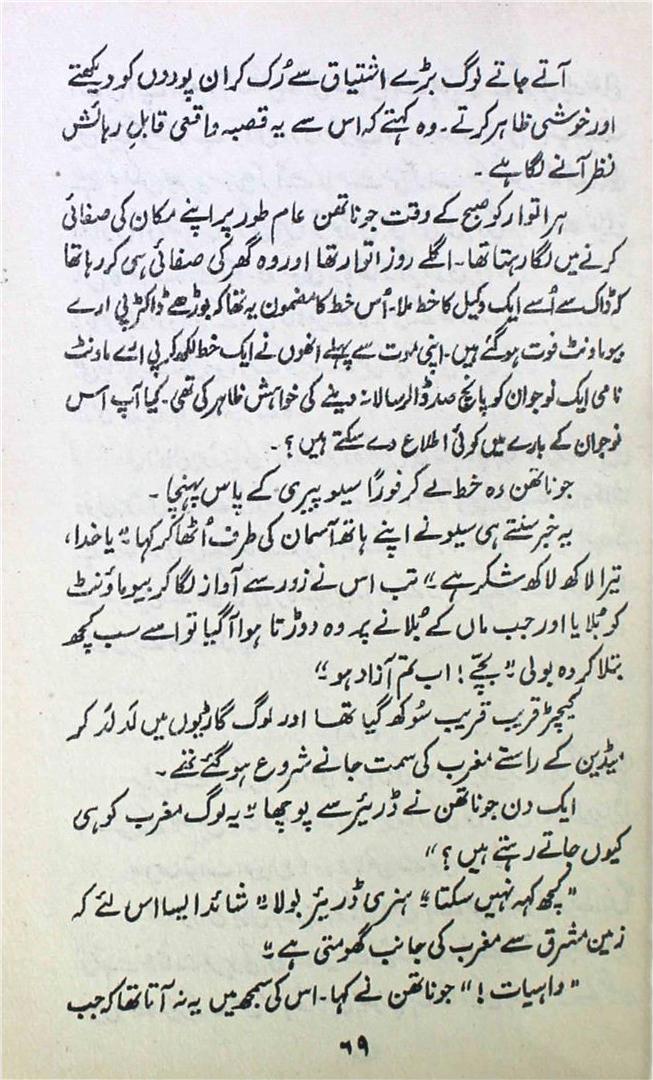 آتے جاتے لوگ بڑے اشتیاق سے رُک کر ان پودوں کو دیکھتے
اور خوشی ظاہر کرتے۔ وہ کہتے کہ اس سے یہ قصبہ واقعی قابلِ رہائش
نظر آنے لگا ہے۔
ہر اتوار کو صبح کے وقت جوناتھن عام طور پر اپنے مکان کی صفائی
کرنے میں لگا رہتا تھا۔ اگلے روز اتوار تھا اور وہ گھر کی صفائی ہی کر رہا تھا
کہ ڈاک سے اُسے ایک وکیل کا خط ملا۔ اُس خط کا مضمون یہ تھا کہ بوڑھے ڈاکٹر پی ارے
بیوماونٹ فوت ہو گئے ہیں۔ اپنی موت سے پہلے انھوں نے ایک خط لکھ کر پی اے ماونٹ
نامی ایک نوجوان کو پانچ صد ڈالر سالانہ دینے کی خواہش ظاہر کی تھی۔ کیا آپ اس
نوجوان کے بارے میں کوئی اطلاع دے سکتے ہیں؟۔
جوناتھن وہ خط لے کر فوراً سیلو پیری کے پاس پہنچا۔
یہ خبر سنتے ہی سیلو نے اپنے ہاتھ آسمان کی طرف اُٹھا کر کہا "یا خدا،
تیرا لاکھ لاکھ شکر ہے" تب اس نے زور سے آواز لگا کر بیوماؤنٹ
کو بُلایا اور جب ماں کے بُلانے پر وہ دوڑتا ہوا آ گیا تو اسے سب کچھ
بتلا کر وہ بولی "بچّے! اب تم آزاد ہو"
کیچڑ قریب قریب سُوکھ گیا تھا اور لوگ گاڑیوں میں لَد لَد کر
میڈین کے راستے مغرب کی سمت جانے شروع ہو گئے تھے۔
ایک دن جوناتھن نے ڈریئر سے پوچھا "یہ لوگ مغرب کو ہی
کیوں جاتے رہتے ہیں؟"
"کچھ کہہ نہیں سکتا" ہنری ڈریئر بولا "شائد ایسا اس لئے کہ
زمین مشرق سے مغرب کی جانب گھومتی ہے"
"واہیات!" جوناتھن نے کہا۔ اس کی سمجھ میں یہ نہ آتا تھا کہ جب
۶۹